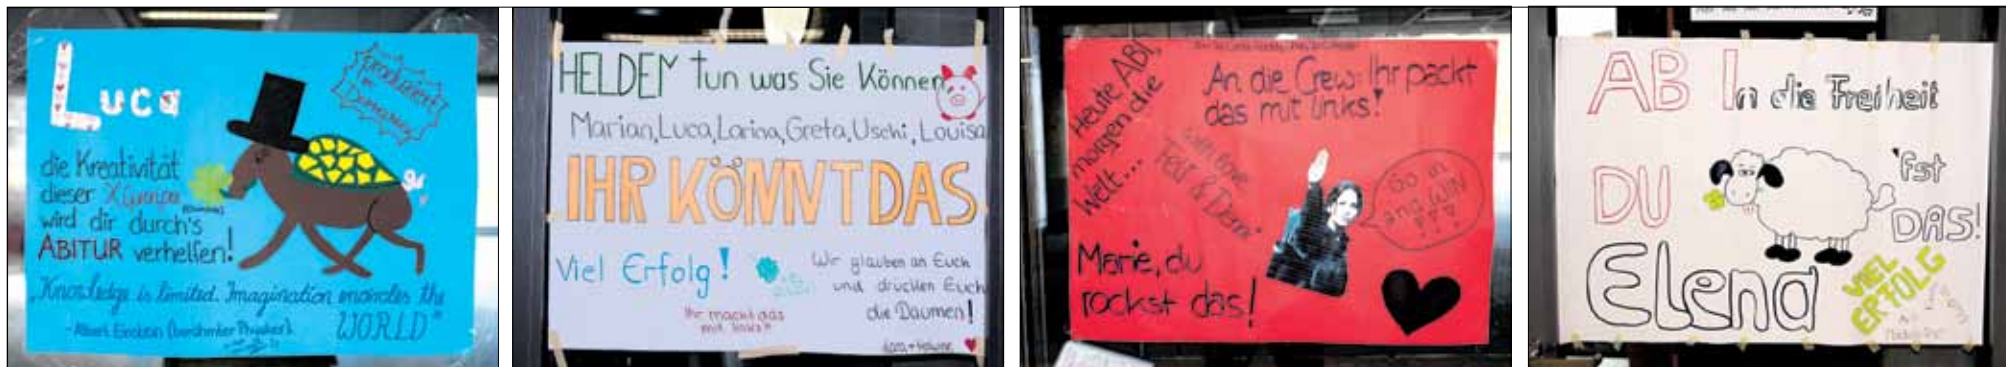 Luca
die Kreativität
dieser
wird dir durch's
ABITUR verhelfen!
„Knowledge is limited. Imagination encircles the
WORLD"
- Albert Einstein (berühmter Physiker)
HELDEN tun was Sie Können
Marian, Luca, Larina, Greta, Uschi, Louisa
IHR KÖNNT DAS
Viel Erfolg!
Wir glauben an Euch
und drücken Euch
die Daumen!
Ihr macht das
mit links!!
Heute ABI,
morgen die
Welt...
An die Crew: Ihr packt
das mit links!
with love
Go in
and WIN
!!!
Marie, du
rockst das!
ABIn die Freiheit
DU
'fst
DAS!
Elena
VIEL
ERFOLG